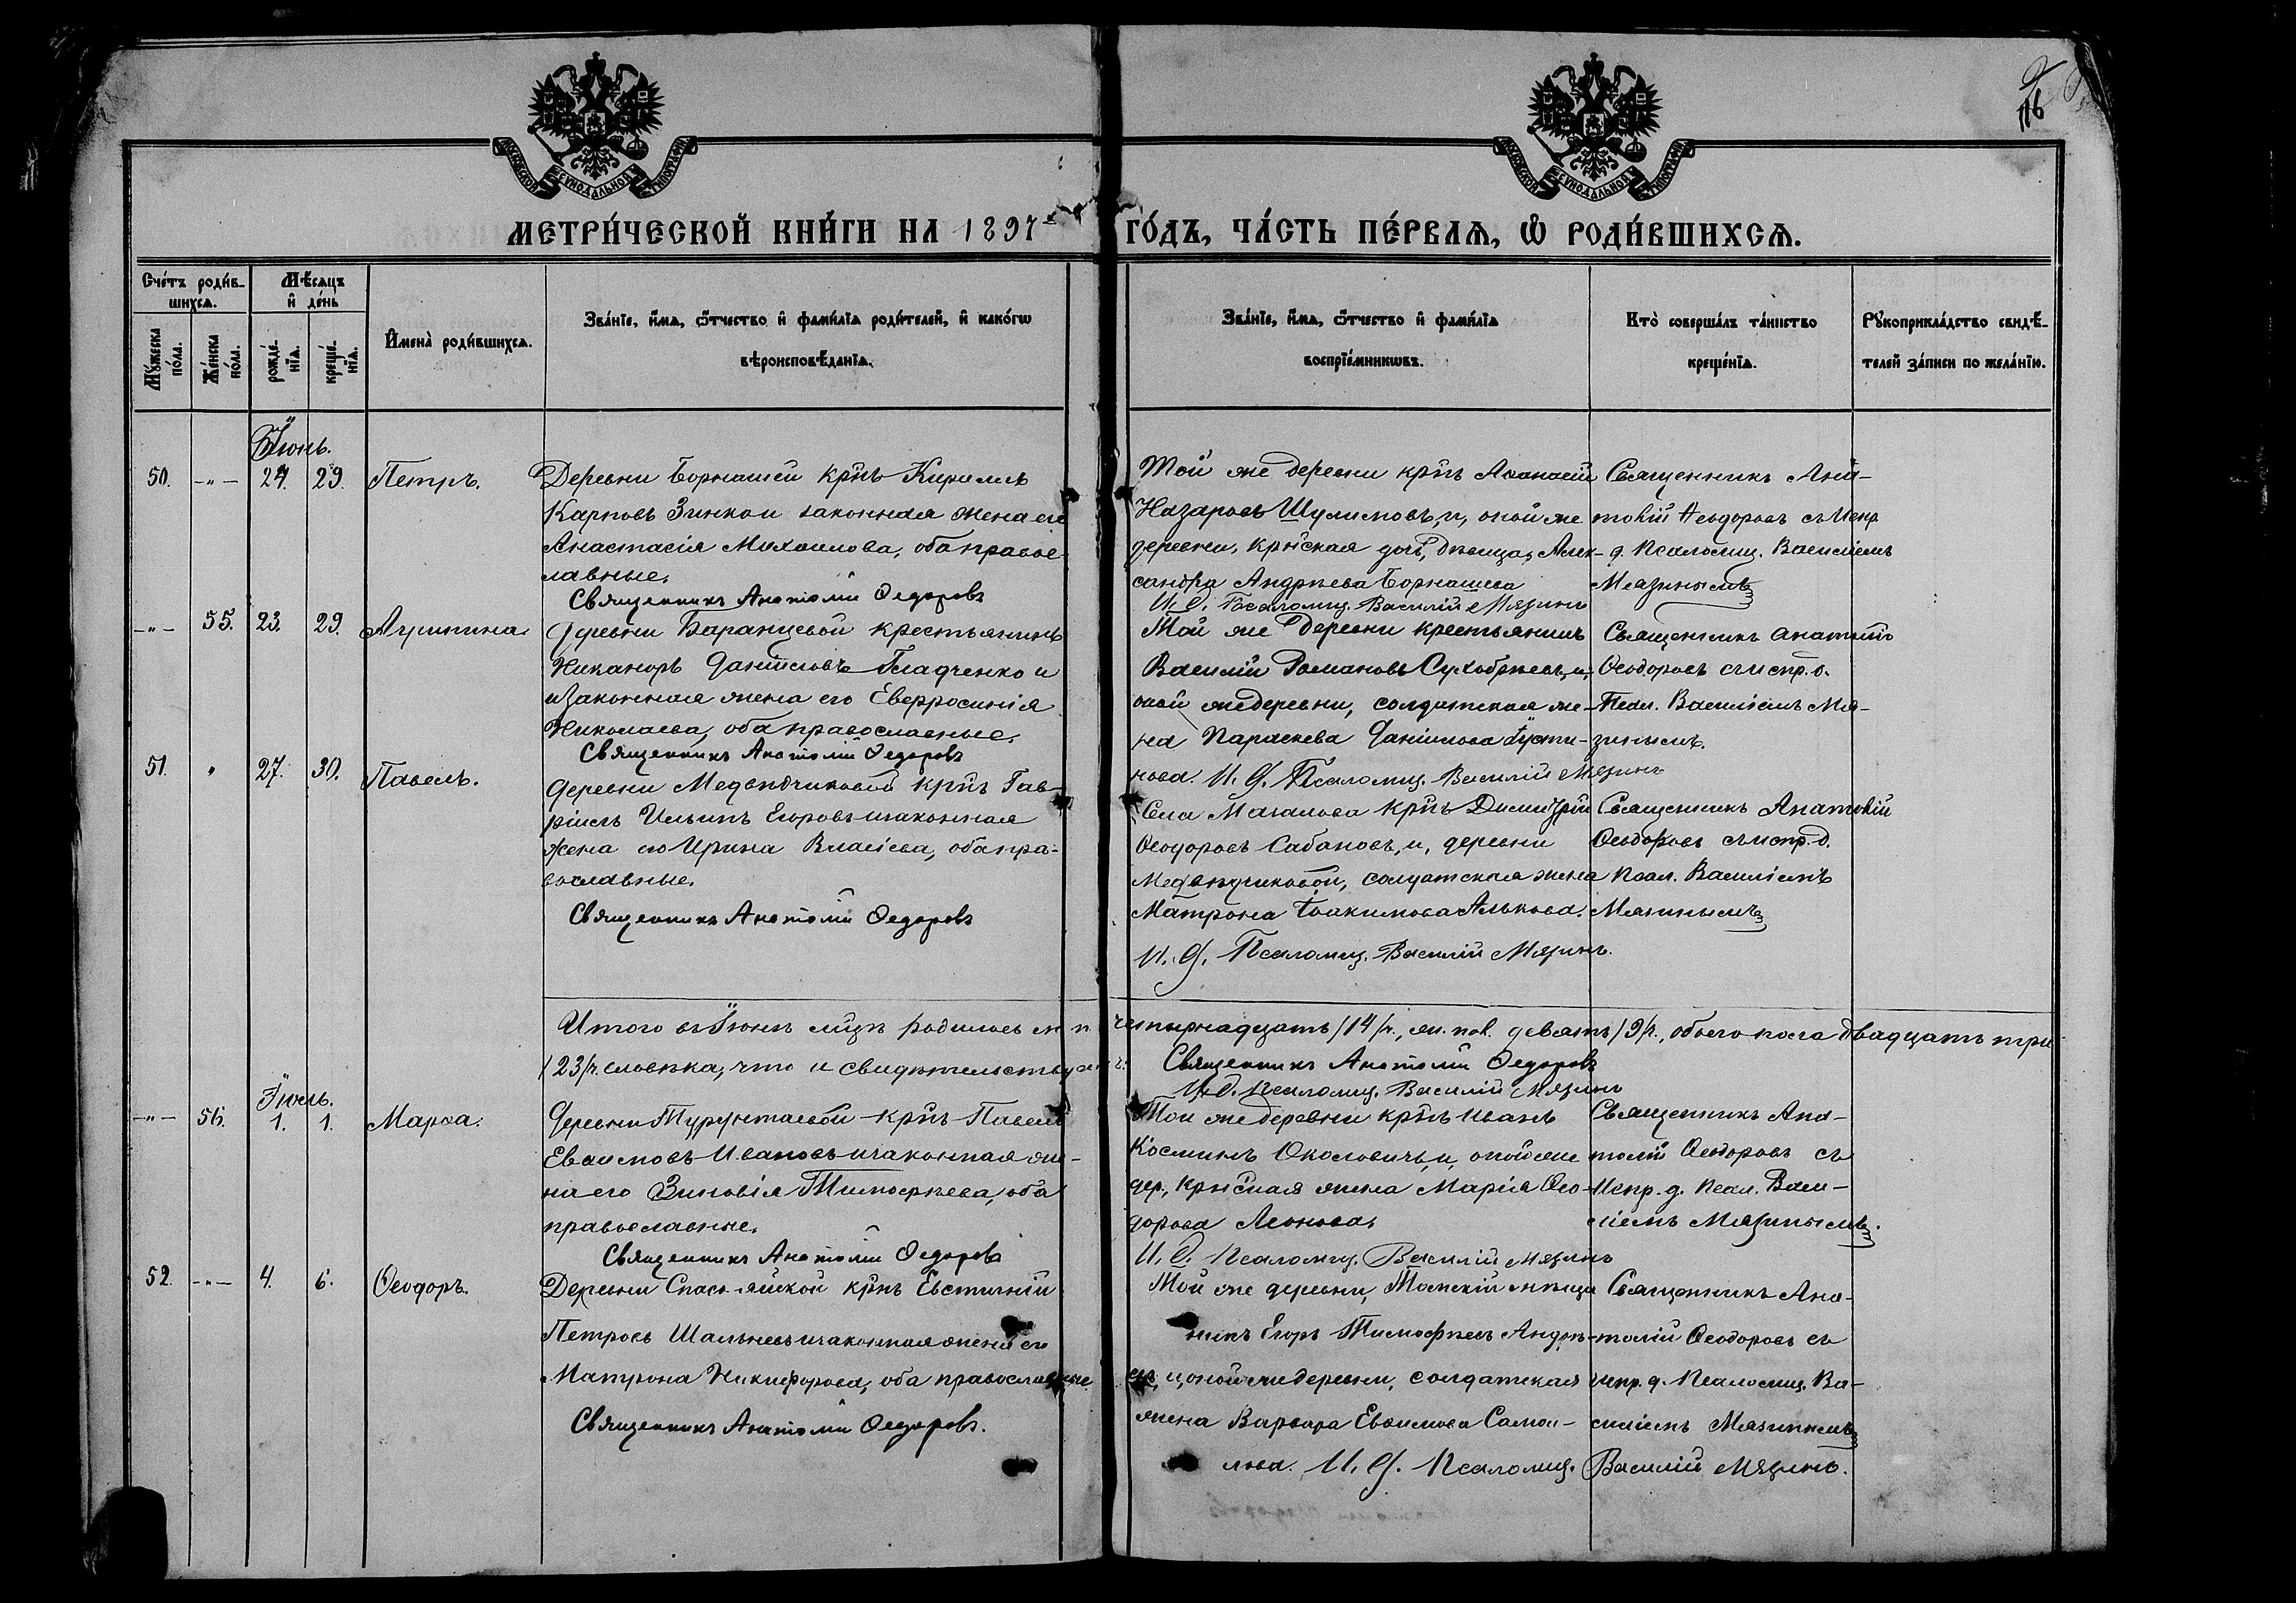 МОСКОВСКОЙ СѴНОДАЛЬНОЙ ТИПОГРАФІИ
МОСКОВСКОЙ СѴНОДАЛЬНОЙ ТИПОГРАФІИ
116
МЕТРИ́ЧЕСКОЙ КНИ́ГИ НА 1897 ГО́ДЪ, ЧА́СТЬ ПЕ́РВАѦ, Ѡ РОДИ́ВШИХСѦ.
Сче́тъ роди́в-
шихсѧ.
Мѣ́сѧцъ
и҆ де́нь
Мꙋ́жеска по́ла.
Же́нска по́ла.
рожде́-
нїѧ.
креще́-
нїѧ.
И҆мена̀ роди́вшихсѧ.
Зва́нїе, и҆́мѧ, ѻ҆́тчество и҆ фами́лїѧ роди́телей, и҆ како́гѡ
вѣроисповѣ́данїѧ.
Зва́нїе, и҆́мѧ, ѻ҆́тчество и҆ фами́лїѧ
воспрїе́мникѡвъ.
Кто̀ соверша́лъ та́инство
креще́нїѧ.
Рꙋкоприкла́дство свидѣ́-
телей за́писи по жела́нїю.
Іюнь.
50. -"- 24. 29. Петръ.
Деревни Борнашей крнъ Кириллъ
Карповъ Зинкои законная жена его
Анастасія Михаилова, оба правос-
лавные.
Священникъ Анатолій Ѳедоровъ
Той же деревни крнъ Аѳанасій
Назаровъ Шулимовъ, и, оной же
деревни, крнская дочь, дѣвица, Алек-
сандра Андреева Борнашева
И. д. Псаломщ. Василій Мязинъ
Священникъ Ана-
толій Ѳеодоровъ съ Испр
д. Псаломщ. Василіемъ
Мязинымъ
-"- 55. 23. 29. Агрипина.
Деревни Баранцевой крестьянинъ
Никаноръ Даниловъ Гладченко и
изаконная жена его Евфросинія
Николаева, оба православные.
Священникъ Анатолій Ѳедоровъ
Той же деревни крестьянинъ
Василій Романовъ Сухобрѣевъ, и,
оной же деревни, солдатская же-
на Параскева Даниілова Густи-
нова. И. д. Псаломщ. Василій Мязинъ
Священникъ Анатолій
Ѳеодоровъ съ испр. д.
Псал. Василіемъ Мя-
зинымъ.
51. " 27. 30. Павелъ.
Деревни Медвѣдчиковой крнъ Гав-
ріилъ Ильинъ Егоровъ и законная
жена его Ирина Власіева, оба пра-
вославные.
Священникъ Анатолій Ѳедоровъ
Села крнъ Димитрій
Ѳеодоровъ Сабановъ, и, деревни
Медвѣдчиковой, солдатская жена
Матрона Іоакимова Алькова.
И. д. Псаломщ. Василій Мязинъ.
Священникъ Анатолій
Ѳеодоровъ съ испр. д.
Псал. Василіемъ
Мязинымъ
Итого въ Іюнѣ мцѣ родилось м. п. четырнадцать /14/ч., ж. пол. девять /9/ч., обоего пола двадцать три
/23/ человѣка; что и свидѣтельствуемъ:
Священникъ Анатолій Ѳедоровъ
И. д. Псаломщ. Василій Мязинъ
Іюль.
-"- 56. 1. 1. Марѳа.
Деревни Турунтаевой крнъ Павелъ
Евѳимовъ Ивановъ и законная же-
на его Зиновія Тимоѳеева, оба
православные.
Священникъ Анатолій Ѳедоровъ
Той же деревни крнъ Иванъ
Косминъ Околовичъ, и, оной же
дер., крнская жена Марія Ѳео-
дорова Леонова.
И. д. Псаломщ. Василій Мязинъ
Священникъ Ана-
толій Ѳеодоровъ съ
Испр. д. Псал. Васи-
ліемъ Мязинымъ.
52. -"- 4. 6. Ѳеодоръ.
Деревни Спасо-яйской крнъ Евстигній
Петровъ Шальневъ и законная жена его
Матрона Никифорова, оба православные.
Священникъ Анатолій Ѳедоровъ.
Той же деревни, Томскій мѣща
нинъ Егоръ Тимофеевъ Андрѣ-
евъ, и, оной же деревни, солдатская
жена Варвара Евѳимова Самой-
лова. И. д. Псаломщ. Василій Мязинъ.
Священникъ Ана-
толій Ѳеодоровъ съ
испр. д. Псаломщ. Ва-
силіемъ Мязинымъ